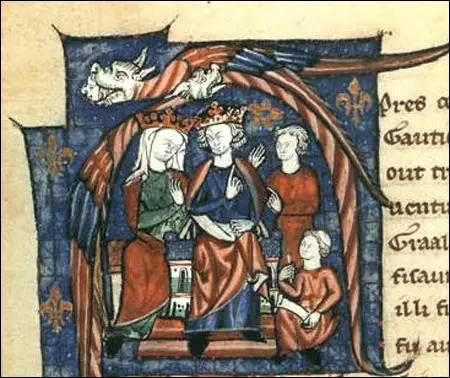 pres ce
Gautie
out tr
uentu
Graal
fisau
illi fi
fu au